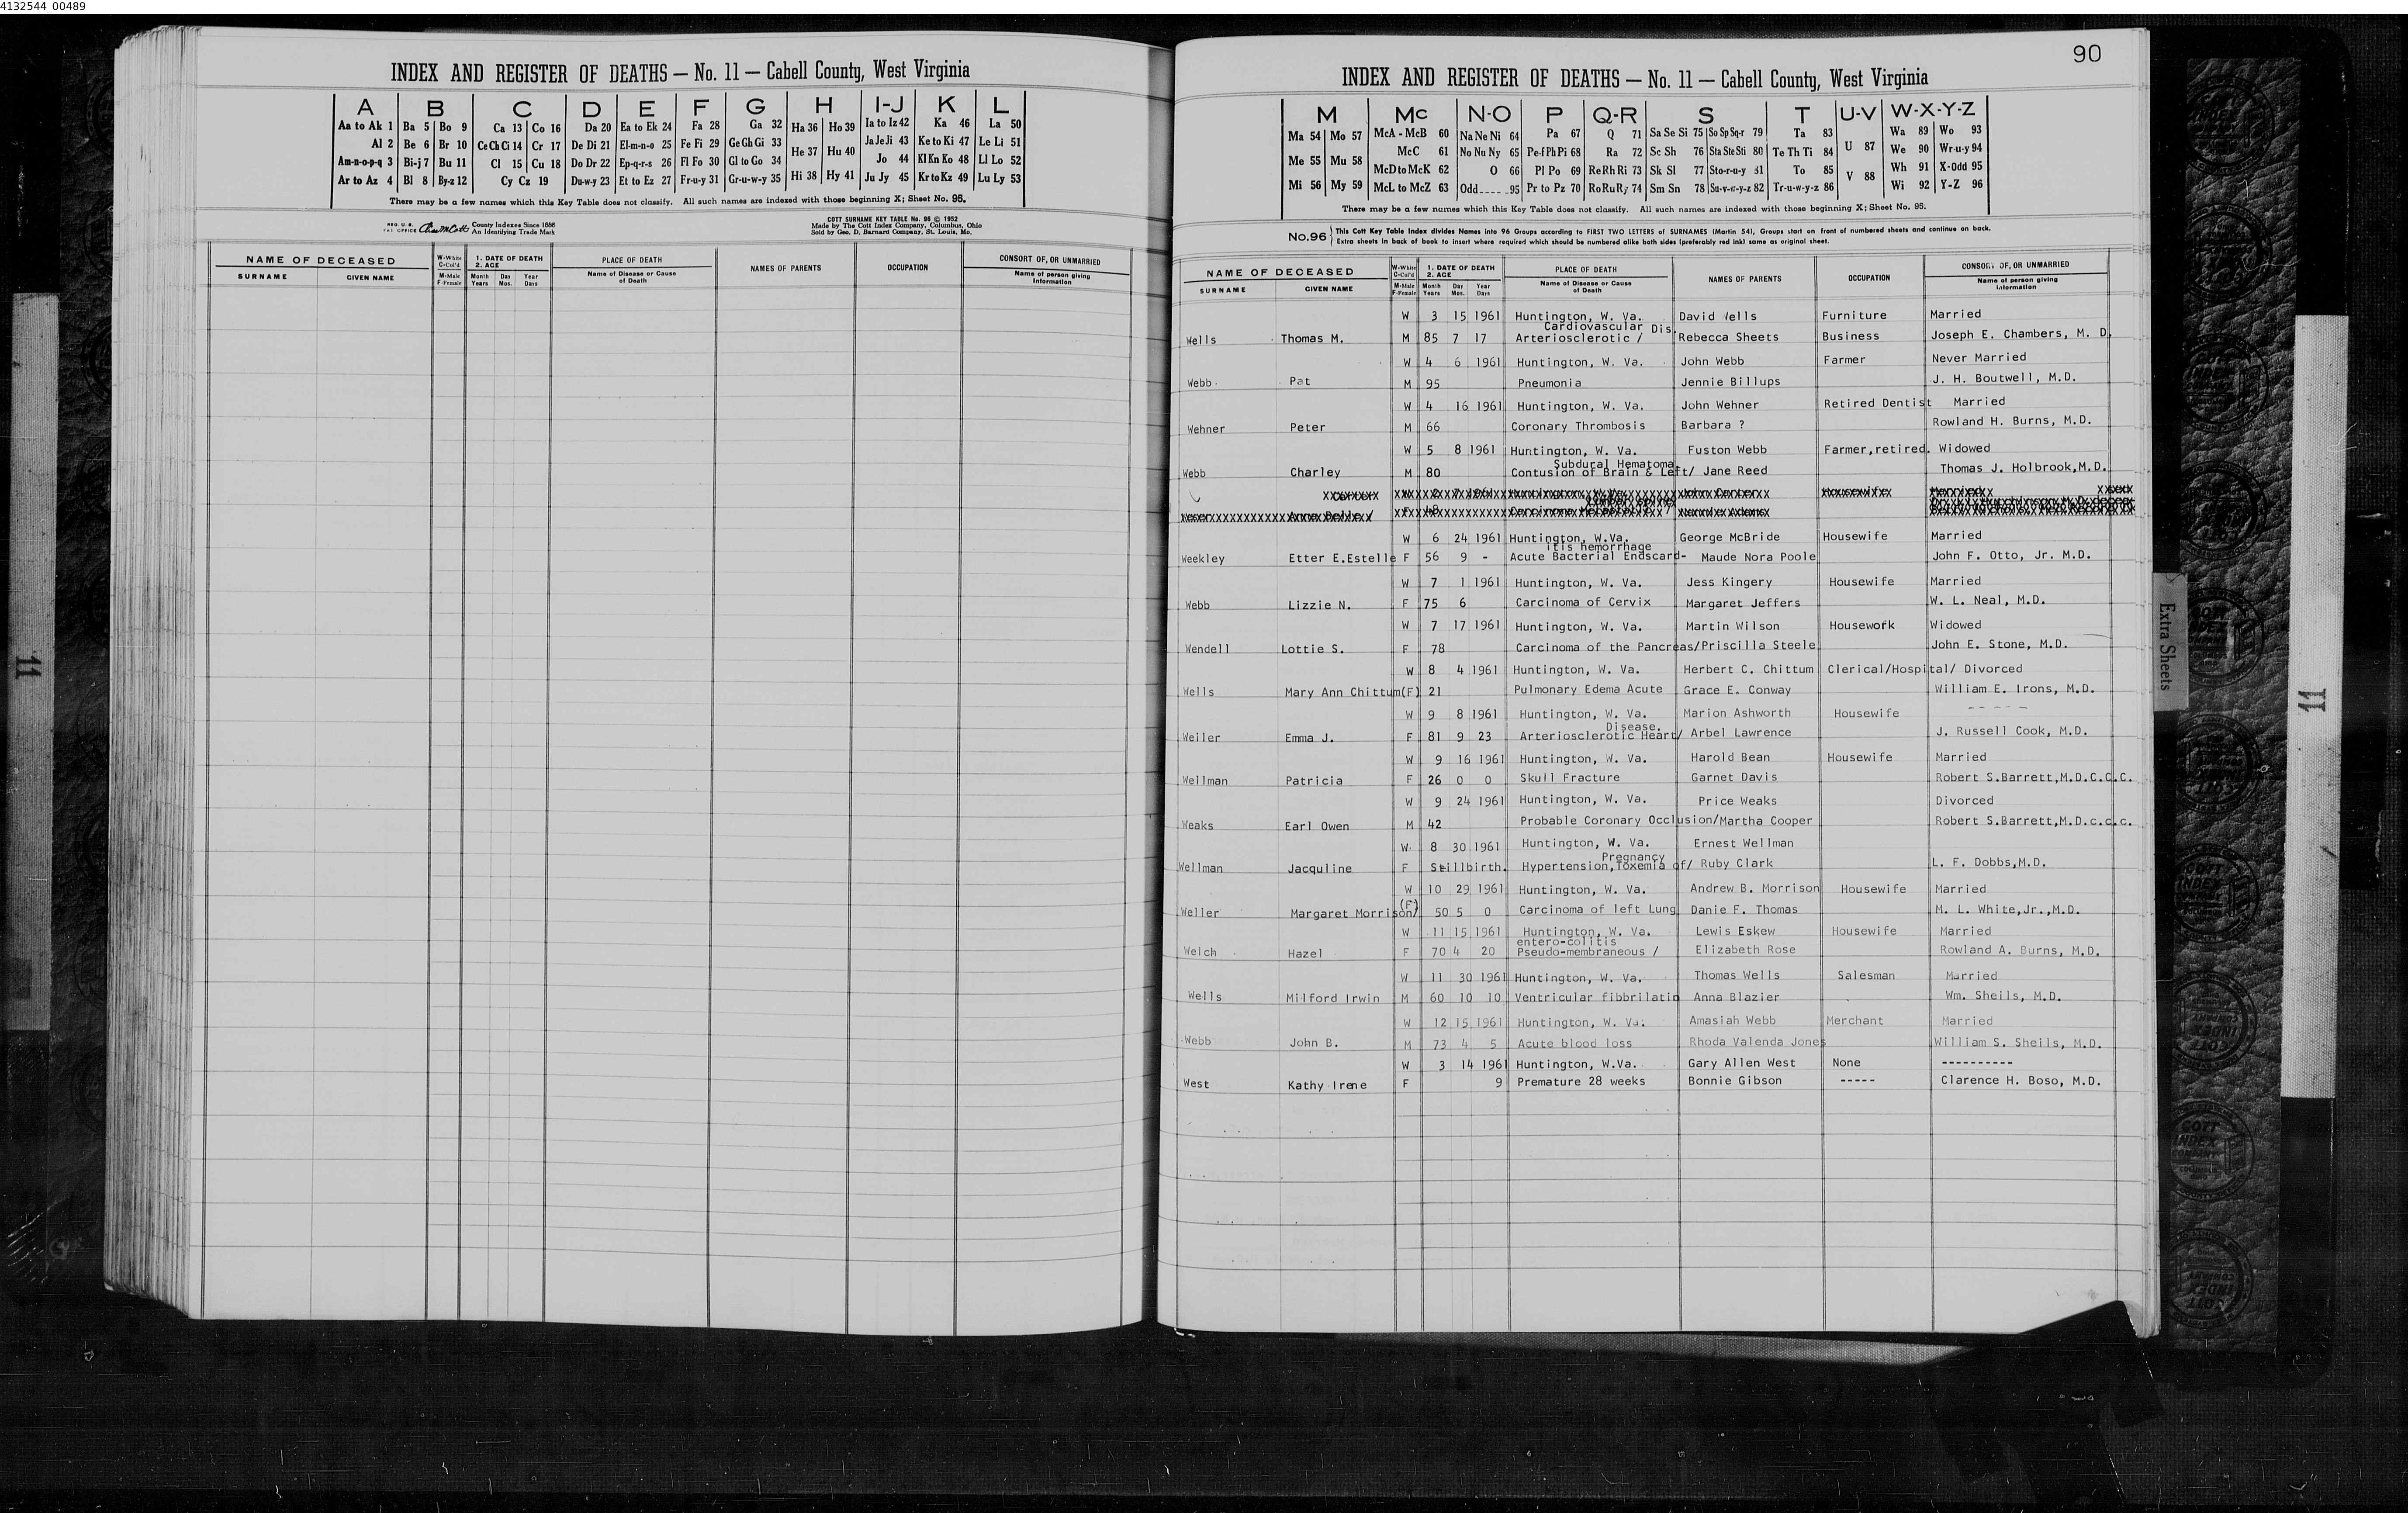 4132544_00489
INDEX AND REGISTER OF DEATHS — No. 11 — Cabell County, West Virginia
A B C D E F G H I-J K L
Aa to Ak 1 Ba 5 Bo 9 Ca 13 Co 16 Da 20 Ea to Ek 24 Fa 28 Ga 32 Ha 36 Ho 39 Ia to Iz 42 Ka 46 La 50
Al 2 Be 6 Br 10 Ce Ch Ci 14 Cr 17 De Di 21 El-m-n-o 25 Fe Fi 29 Ge Gh Gi 33 He 37 Hu 40 Ja Je Ji 43 Ke to Ki 47 Le Li 51
Am-n-o-p-q 3 Bi-j 7 Bu 11 Cl 15 Cu 18 Do Dr 22 Ep-q-r-s 26 Fl Fo 30 Gl to Go 34 Jo 44 Kl Kn Ko 48 Ll Lo 52
Ar to Az 4 Bl 8 By-z 12 Cy Cz 19 Du-w-y 23 Et to Ez 27 Fr-u-y 31 Gr-u-w-y 35 Hi 38 Hy 41 Ju Jy 45 Kr to Kz 49 Lu Ly 53
There may be a few names which this Key Table does not classify. All such names are indexed with those beginning X; Sheet No. 95.
REG. U.S. PAT. OFFICE County Indexes Since 1888 An Identifying Trade Mark
COTT SURNAME KEY TABLE No. 96 © 1952
Made by The Cott Index Company, Columbus, Ohio
Sold by Geo. D. Barnard Company, St. Louis, Mo.
NAME OF DECEASED W-White C-Col'd 1. DATE OF DEATH 2. AGE PLACE OF DEATH NAMES OF PARENTS OCCUPATION CONSORT OF, OR UNMARRIED
SURNAME GIVEN NAME M-Male F-Female Month Years Day Mos. Year Days Name of Disease or Cause of Death Name of person giving Information
90
INDEX AND REGISTER OF DEATHS — No. 11 — Cabell County, West Virginia
M Mc N-O P Q-R S T U-V W-X-Y-Z
Ma 54 Mo 57 McA - McB 60 Na Ne Ni 64 Pa 67 Q 71 Sa Se Si 75 So Sp Sq-r 79 Ta 83 U 87 Wa 89 Wo 93
Me 55 Mu 58 McC 61 No Nu Ny 65 Pe-f Ph Pi 68 Ra 72 Sc Sh 76 Sta Ste Sti 80 Te Th Ti 84 We 90 Wr-u-y 94
McD to McK 62 O 66 Pl Po 69 Re Rh Ri 73 Sk Sl 77 Sto-r-u-y 81 To 85 V 88 Wh 91 X-Odd 95
Mi 56 My 59 McL to McZ 63 Odd 95 Pr to Pz 70 Ro Ru Ry 74 Sm Sn 78 Su-v-w-y-z 82 Tr-u-w-y-z 86 Wi 92 Y-Z 96
There may be a few names which this Key Table does not classify. All such names are indexed with those beginning X; Sheet No. 95.
No.96 This Cott Key Table Index divides Names into 96 Groups according to FIRST TWO LETTERS of SURNAMES (Martin 54), Groups start on front of numbered sheets and continue on back.
Extra sheets in back of book to insert where required which should be numbered alike both sides (preferably red ink) same as original sheet.
NAME OF DECEASED W-White C-Col'd 1. DATE OF DEATH 2. AGE PLACE OF DEATH NAMES OF PARENTS OCCUPATION CONSORT OF, OR UNMARRIED
SURNAME GIVEN NAME M-Male F-Female Month Years Day Mos. Year Days Name of Disease or Cause of Death Name of person giving Information
W 3 15 1961 Huntington, W. Va. David Wells Furniture Married
Cardiovascular Dis.
Wells Thomas M. M 85 7 17 Arteriosclerotic / Rebecca Sheets Business Joseph E. Chambers, M. D.
W 4 6 1961 Huntington, W. Va. John Webb Farmer Never Married
Webb Pat M 95 Pneumonia Jennie Billups J. H. Boutwell, M.D.
W 4 16 1961 Huntington, W. Va. John Wehner Retired Dentist Married
Wehner Peter M 66 Coronary Thrombosis Barbara ? Rowland H. Burns, M.D.
W 5 8 1961 Huntington, W. Va. Fuston Webb Farmer,retired. Widowed
Subdural Hematoma.
Webb Charley M 80 Contusion of Brain & Left/ Jane Reed Thomas J. Holbrook,M.D.
W 6 24 1961 Huntington, W.Va. George McBride Housewife Married
itis hemorrhage
Weekley Etter E.Estelle F 56 9 - Acute Bacterial Endscard- Maude Nora Poole John F. Otto, Jr. M.D.
W 7 1 1961 Huntington, W. Va. Jess Kingery Housewife Married
Webb Lizzie N. F 75 6 Carcinoma of Cervix Margaret Jeffers W. L. Neal, M.D.
W 7 17 1961 Huntington, W. Va. Martin Wilson Housework Widowed
Wendell Lottie S. F 78 Carcinoma of the Pancreas/Priscilla Steele John E. Stone, M.D.
W 8 4 1961 Huntington, W. Va. Herbert C. Chittum Clerical/Hospital/ Divorced
Wells Mary Ann Chittum(F) 21 Pulmonary Edema Acute Grace E. Conway William E. Irons, M.D.
W 9 8 1961 Huntington, W. Va. Marion Ashworth Housewife - - - - -
Disease.
Weiler Emma J. F 81 9 23 Arteriosclerotic Heart/ Arbel Lawrence J. Russell Cook, M.D.
W 9 16 1961 Huntington, W. Va. Harold Bean Housewife Married
Wellman Patricia F 26 0 0 Skull Fracture Garnet Davis Robert S.Barrett,M.D.C.C.C.
W 9 24 1961 Huntington, W. Va. Price Weaks Divorced
Weaks Earl Owen M 42 Probable Coronary Occlusion/Martha Cooper Robert S.Barrett,M.D.c.c.c.
W 8 30 1961 Huntington, W. Va. Ernest Wellman
Pregnancy
Wellman Jacquline F Stillbirth. Hypertension,Toxemia of/ Ruby Clark L. F. Dobbs,M.D.
W 10 29 1961 Huntington, W. Va. Andrew B. Morrison Housewife Married
(F)
Weller Margaret Morrison/ 50 5 0 Carcinoma of left Lung Danie F. Thomas M. L. White,Jr.,M.D.
W 11 15 1961 Huntington, W. Va. Lewis Eskew Housewife Married
entero-colitis
Welch Hazel F 70 4 20 Pseudo-membraneous / Elizabeth Rose Rowland A. Burns, M.D.
W 11 30 1961 Huntington, W. Va. Thomas Wells Salesman Married
Wells Milford Irwin M 60 10 10 Ventricular fibbrilatin Anna Blazier Wm. Sheils, M.D.
W 12 15 1961 Huntington, W. Va. Amasiah Webb Merchant Married
Webb John B. M 73 4 5 Acute blood loss Rhoda Valenda Jones William S. Sheils, M.D.
W 3 14 1961 Huntington, W.Va. Gary Allen West None ----------
West Kathy Irene F 9 Premature 28 weeks Bonnie Gibson ----- Clarence H. Boso, M.D.
Extra Sheets
11
11